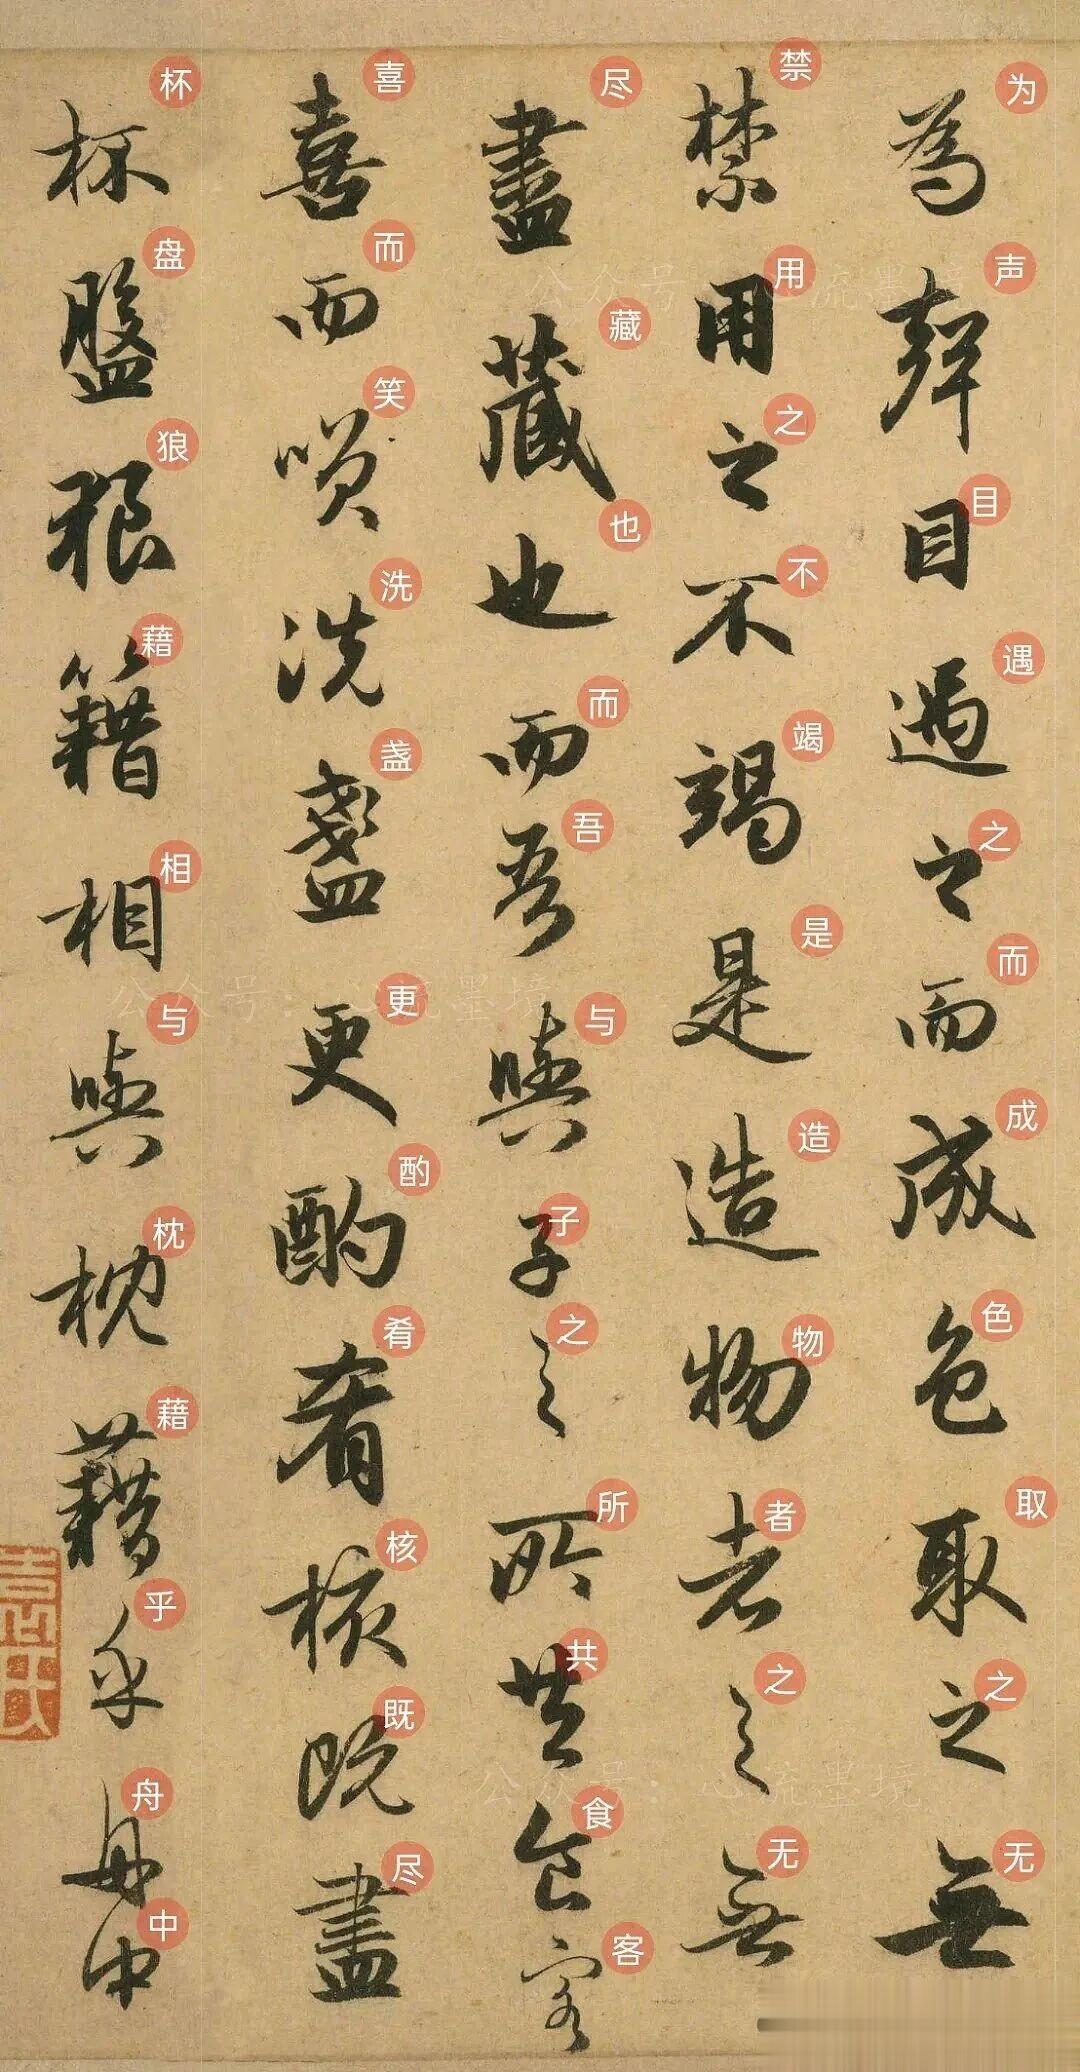 為聲目遇之而成色取之無
为声目遇之而成色取之无
禁用之不竭是造物者之無
禁用之不竭是造物者之无
盡藏也而吾與子之所共食客
尽藏也而吾与子之所共食客
喜而咲洗盞更酌肴核既盡
喜而笑洗盏更酌肴核既尽
杯盤狼籍相與枕藉乎舟中
杯盘狼藉相与枕藉乎舟中
公众号：心流墨境
公众号：心流墨境
公众号：心流墨境